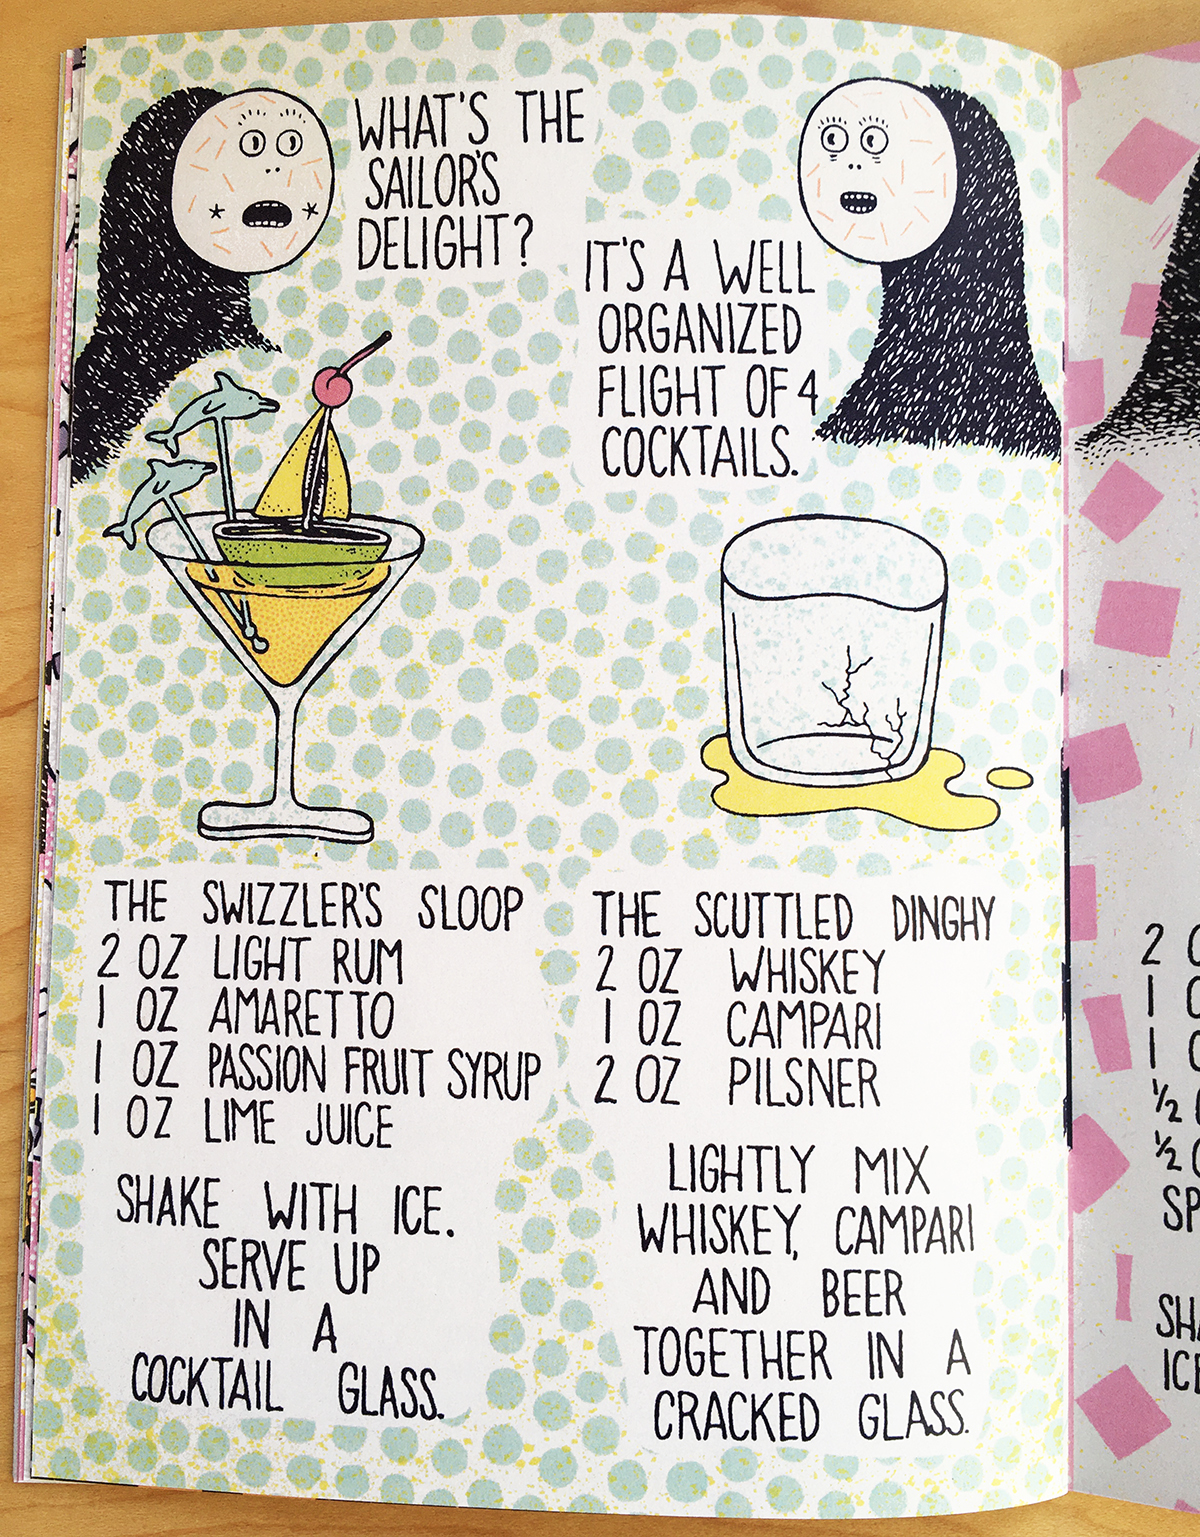 WHAT'S THE
SAILOR'S
DELIGHT?
IT'S A WELL
ORGANIZED
FLIGHT OF 4
COCKTAILS.
THE SWIZZLER'S SLOOP
2 OZ LIGHT RUM
1 OZ AMARETTO
1 OZ PASSION FRUIT SYRUP
1 OZ LIME JUICE
SHAKE WITH ICE.
SERVE UP
IN A
COCKTAIL GLASS.
THE SCUTTLED DINGHY
2 OZ WHISKEY
1 OZ CAMPARI
2 OZ PILSNER
LIGHTLY MIX
WHISKEY, CAMPARI
AND BEER
TOGETHER IN A
CRACKED GLASS.
2
1
1
1/2
1/2